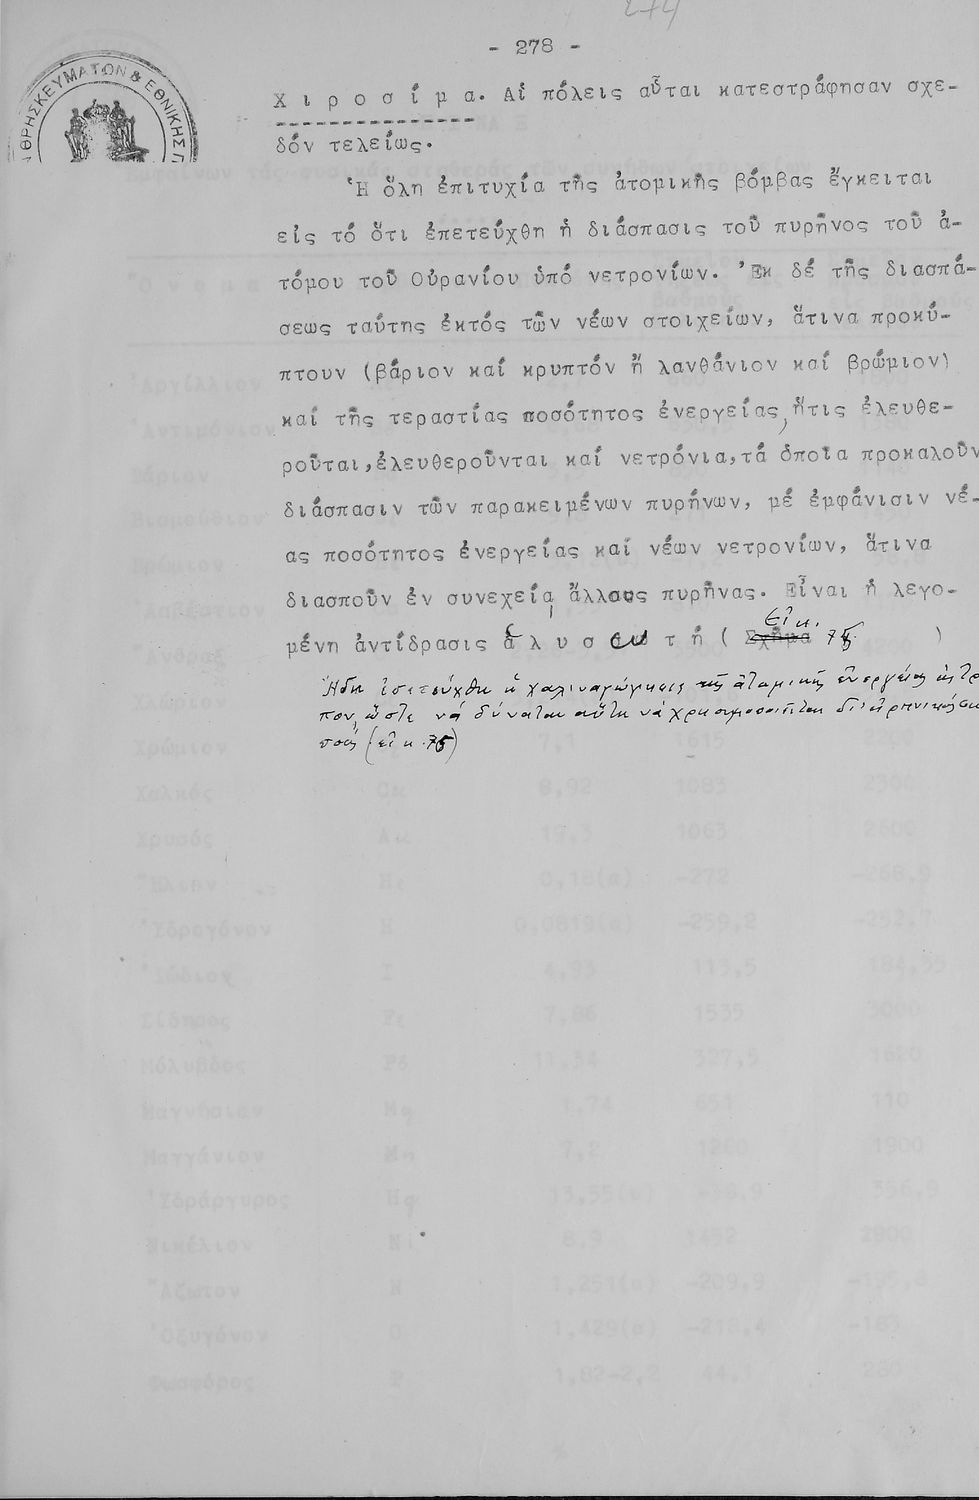 274
- 278 -
ΘΡΗΣΚΕΥΜΑΤΩΝ & ΕΘΝΙΚΗΣ Π
Χ ι ρ ο σ ί μ α. Αἱ πόλεις αὗται κατεστράφησαν σχε-
δόν τελείως.
Ἡ ὅλη ἐπιτυχία τῆς ἀτομικῆς βόμβας ἔγκειται
εἰς τό ὅτι ἐπετεύχθη ἡ διάσπασις τοῦ πυρῆνος τοῦ ἀ-
τόμου τοῦ Οὐρανίου ὑπό νετρονίων. Ἐκ δέ τῆς διασπά-
σεως ταύτης ἐκτός τῶν νέων στοιχείων, ἅτινα προκύ-
πτουν (βάριον καί κρυπτόν ἤ λανθάνιον καί βρώμιον)
καί τῆς τεραστίας ποσότητος ἐνεργείας, ἥτις ἐλευθε-
ροῦται, ἐλευθεροῦνται καί νετρόνια, τά ὁποῖα προκαλοῦν
διάσπασιν τῶν παρακειμένων πυρήνων, μέ ἐμφάνισιν νέ-
ας ποσότητος ἐνεργείας καί νέων νετρονίων, ἅτινα
διασποῦν ἐν συνεχείᾳ ἄλλους πυρῆνας. Εἶναι ἡ λεγο-
μένη ἀντίδρασις ἁ λ υ σ ω τ ή ( Σχῆμα Εἰκ. 75 )
Ἤδη ἐπετεύχθη ἡ χαλιναγώγησις τῆς ἀτομικῆς ἐνεργείας
ὥστε νά δύναται αὕτη νά χρησιμοποιῆται δι' εἰρηνικούς
(εἰκ. 76)